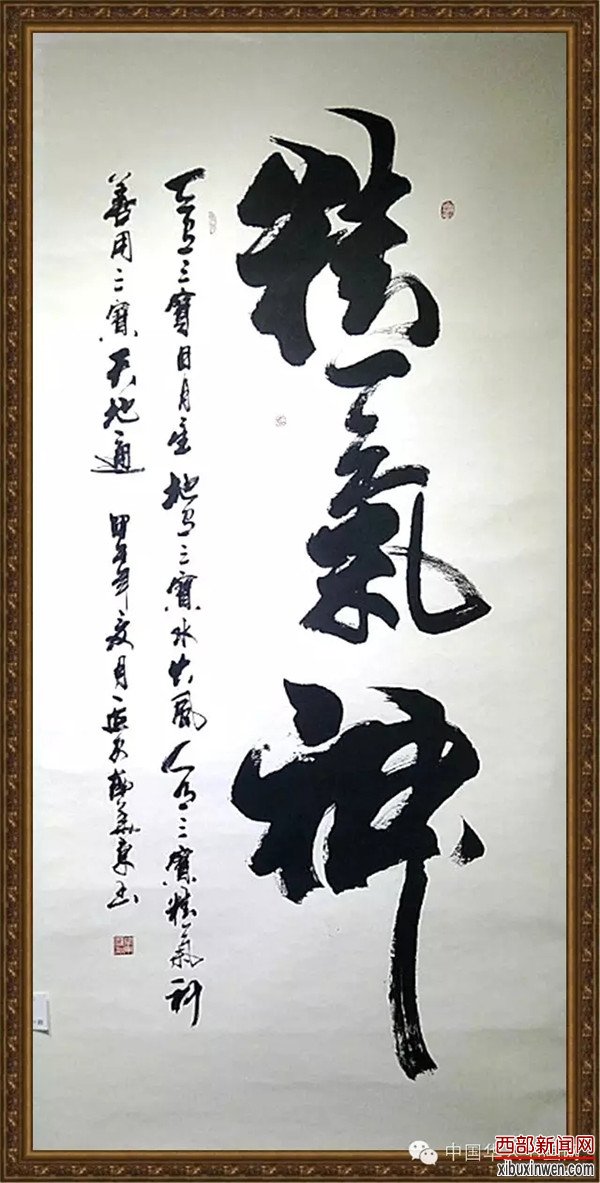 精氣神
天有三寶日月星地有三寶水火風人有三寶精氣神
善用三寶天地通 甲午年夏月 書
中国华
西部新闻网
xibuxinwen.com